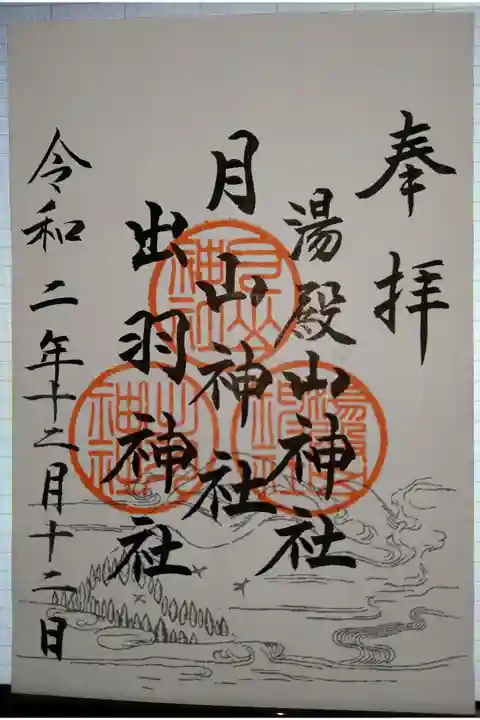 奉拝
湯殿山神社
月山神社
出羽神社
令和二年十二月十二日